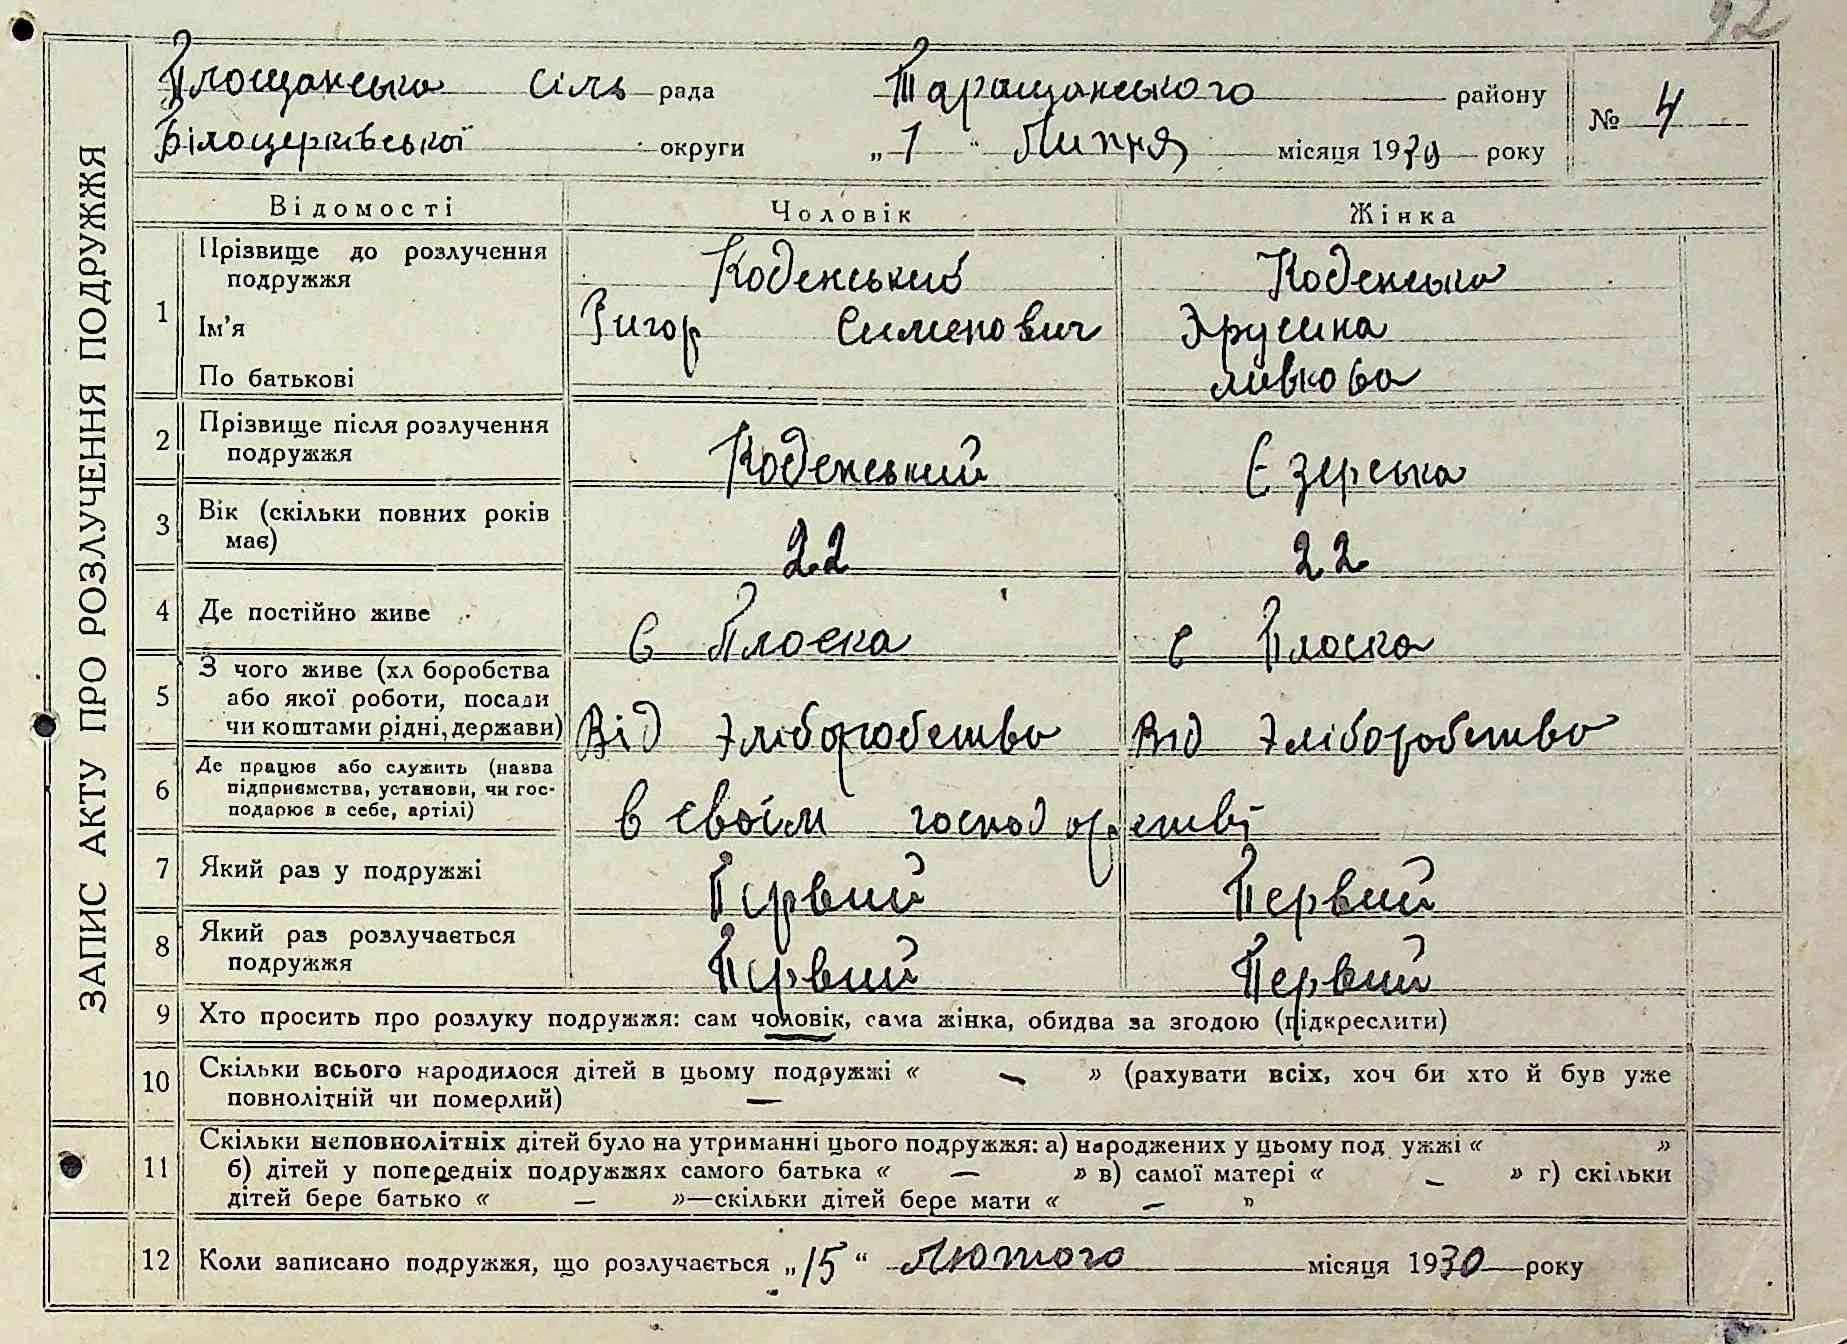 92
ЗАПИС АКТУ ПРО РОЗЛУЧЕННЯ ПОДРУЖЖЯ
Площанська сіль рада Таращанського району
№ 4
Білоцерківської округи „1“ Липня місяця 1930 року
Відомості Чоловік Жінка
1 Прізвище до розлучення подружжя Коденський Коденська
Ім'я Григор Сименович Хрусина
По батькові Левкова
2 Прізвище після розлучення подружжя Коденський Єзерська
3 Вік (скільки повних років має) 22 22
4 Де постійно живе с Плоска с Плоска
5 З чого живе (хл боробства або якої роботи, посади чи коштами рідні, держави) Від хліборобства Від хліборобства
6 Де працює або служить (назва підприємства, установи, чи господарює в себе, артілі) в своїм господарстві
7 Який раз у подружжі Первий Первий
8 Який раз розлучається подружжя Первий Первий
9 Хто просить про розлуку подружжя: сам чоловік, сама жінка, обидва за згодою (підкреслити)
10 Скільки всього народилося дітей в цьому подружжі « — » (рахувати всіх, хоч би хто й був уже
повнолітній чи померлий) —
11 Скільки неповнолітніх дітей було на утриманні цього подружжя: а) народжених у цьому под ужжі « »
б) дітей у попередніх подружжях самого батька « — » в) самої матері « — » г) скільки
дітей бере батько « — »—скільки дітей бере мати « — »
12 Коли записано подружжя, що розлучається „15“ Лютого місяця 1930 року